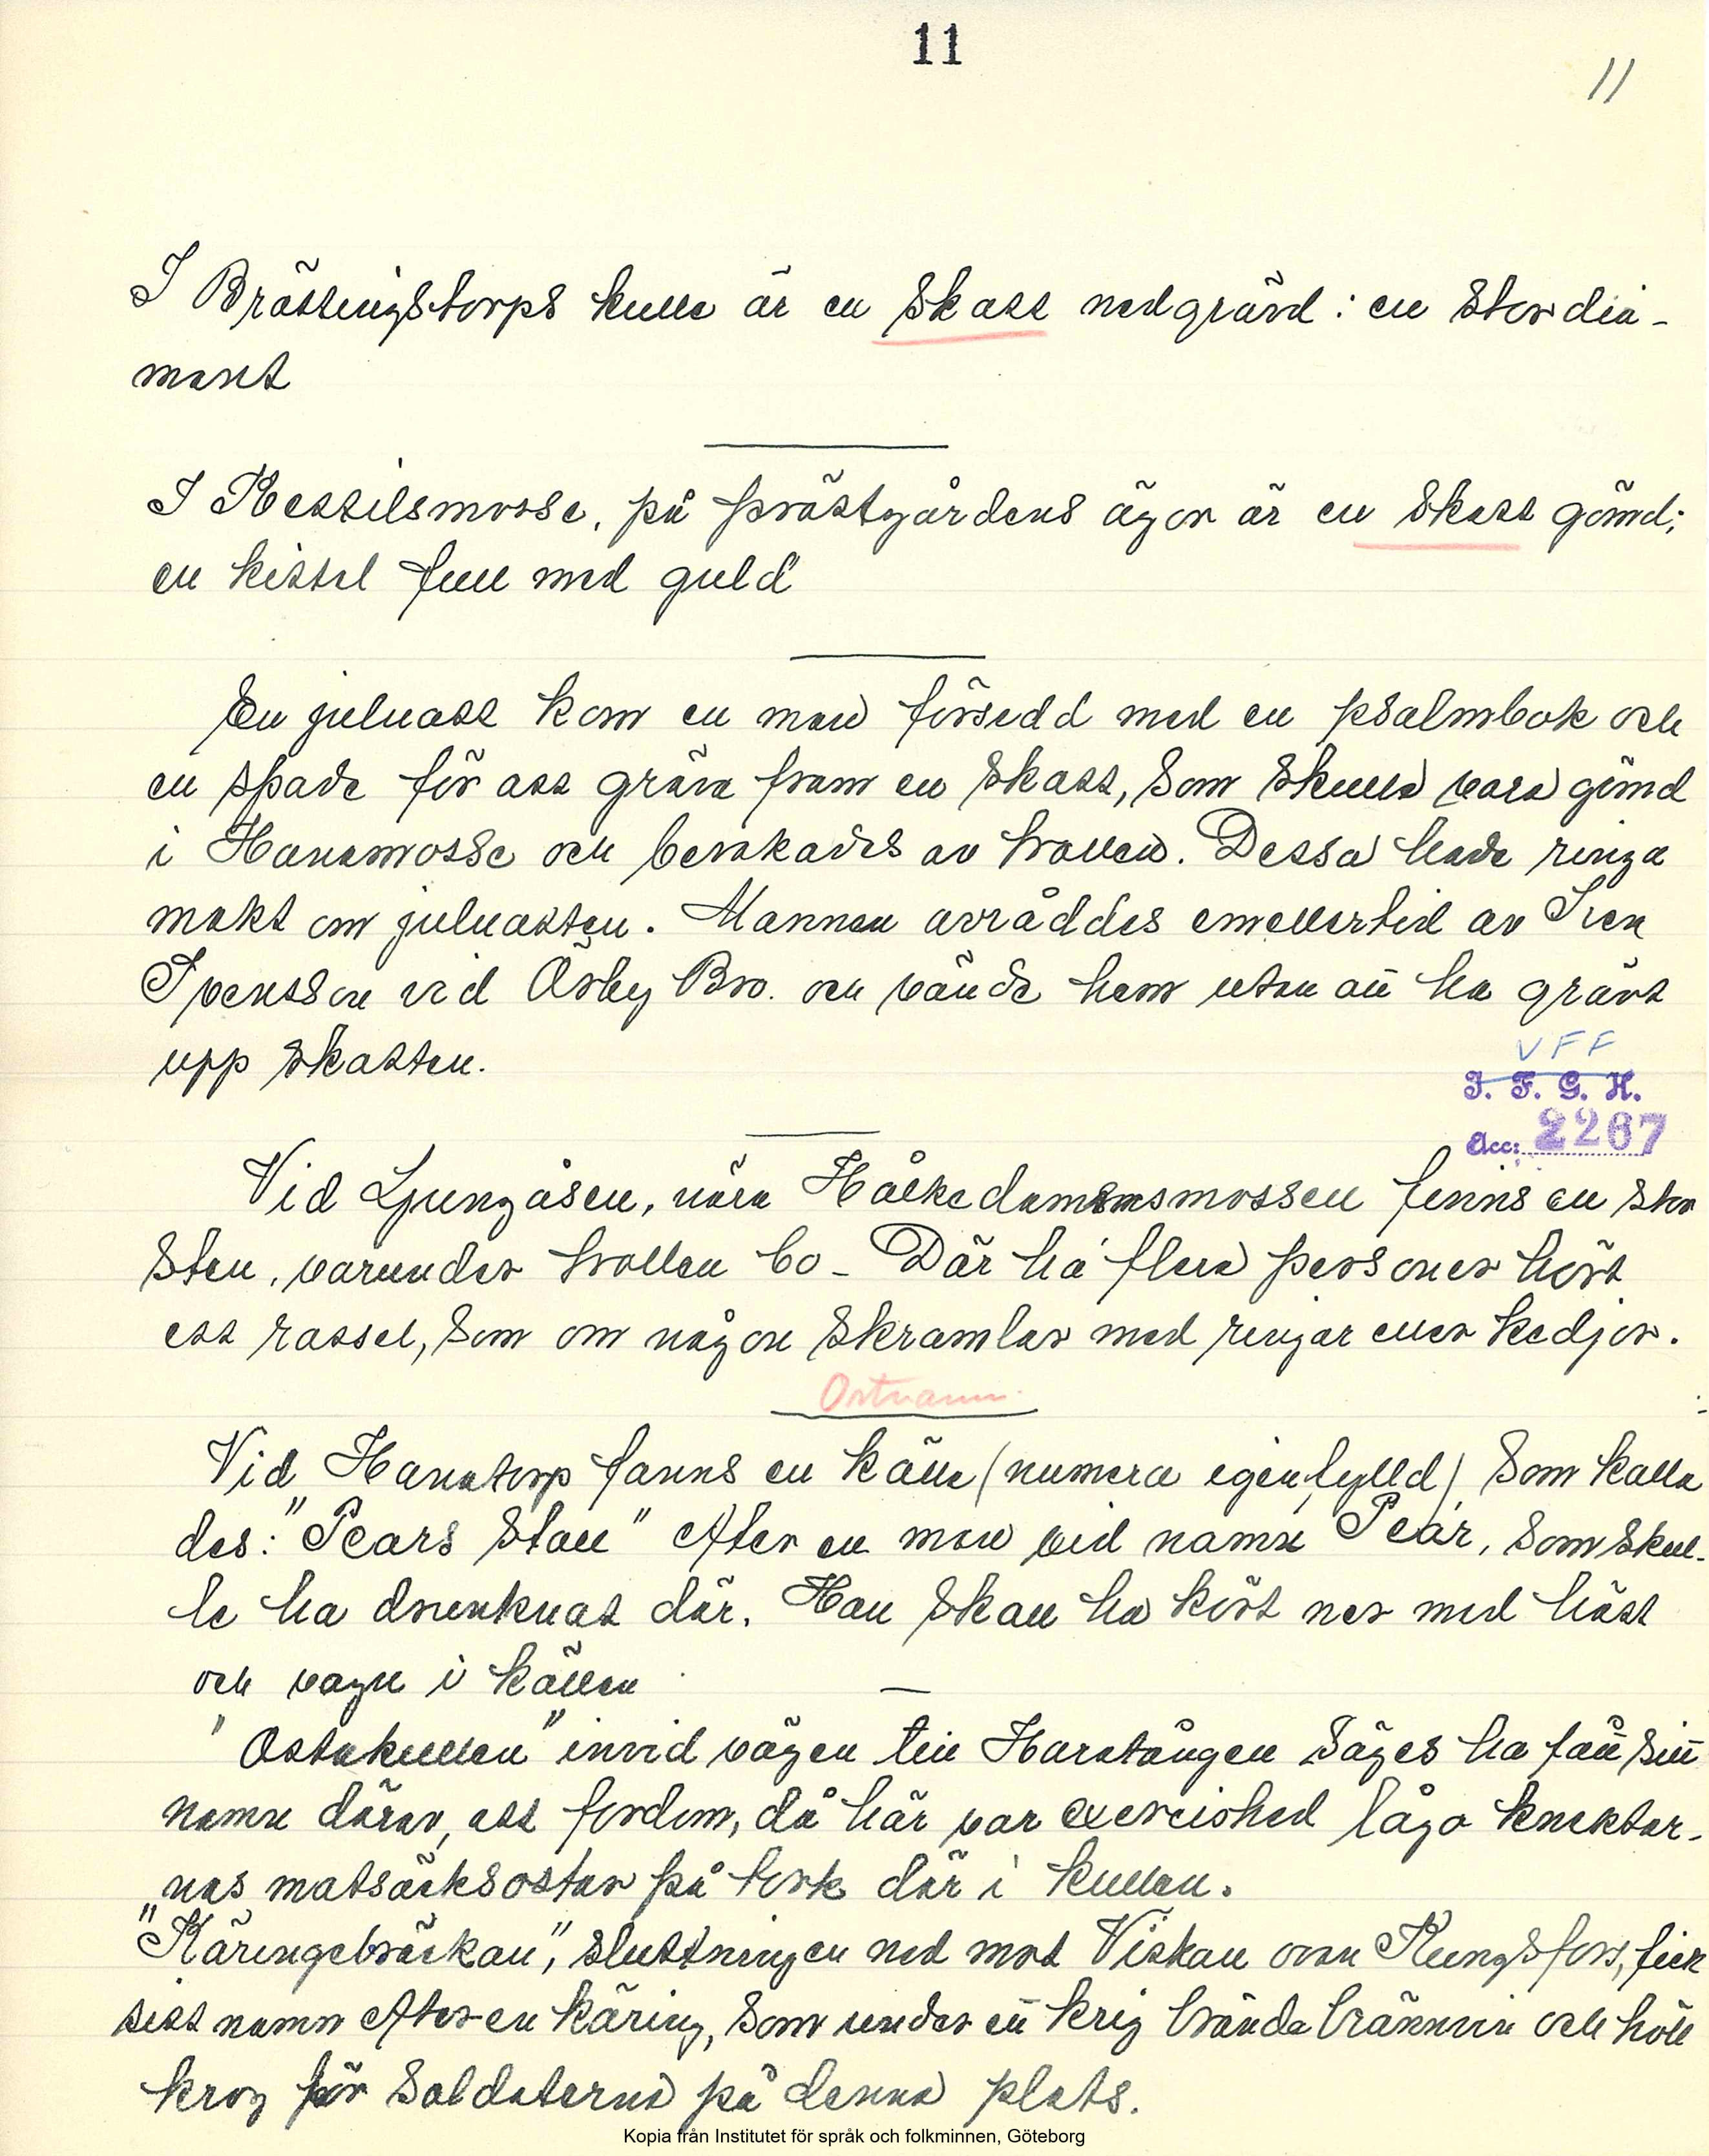 11
11
I Brättingstorps kulle är en skatt nedgrävd: en stor dia-
mant
I Kettilsmosse, på prästgårdens ägor är en skatt gömd;
en kittel full med guld
En julnatt kom en man försedd med en psalmbok och
en spade för att gräva fram en skatt, som skulle vara gömd
i Hanamosse och bevakades av trollen. Dessa hade ringa
makt om julnatten. Mannen avråddes emellertid av Sven
Svensson vid Åsby Bro. och vände hem utan att ha grävt
upp skatten.
VFF
I. F. G. H.
Acc: 2267
Vid Ljungåsen, nära mossen finns en stor
sten, varunder trollen bo - Där ha flera personer hört
ett rassel, som om någon skramlar med ringar eller kedjor.
Ortnamn.
Vid Hanatorp fanns en källa (numera igenfylld) som kalla
des: "Pears Stall" efter en man vid namn Pear, som skul-
le ha drunknat där. Han skall ha kört ner med häst
och vagn i källan
"Ostakullen" invid vägen till Haratången säges ha fått sitt
namn därav, att fordom, då här var exercished lågo knektar-
nas matsäcksostar på tork där i kullen.
"Käringebräckan", sluttningen ned mot Viskan ovan Kungsfors, fick
sitt namn efter en käring, som under ett krig brände brännvin och höll
krog för soldaterna på denna plats.
Kopia från Institutet för språk och folkminnen, Göteborg